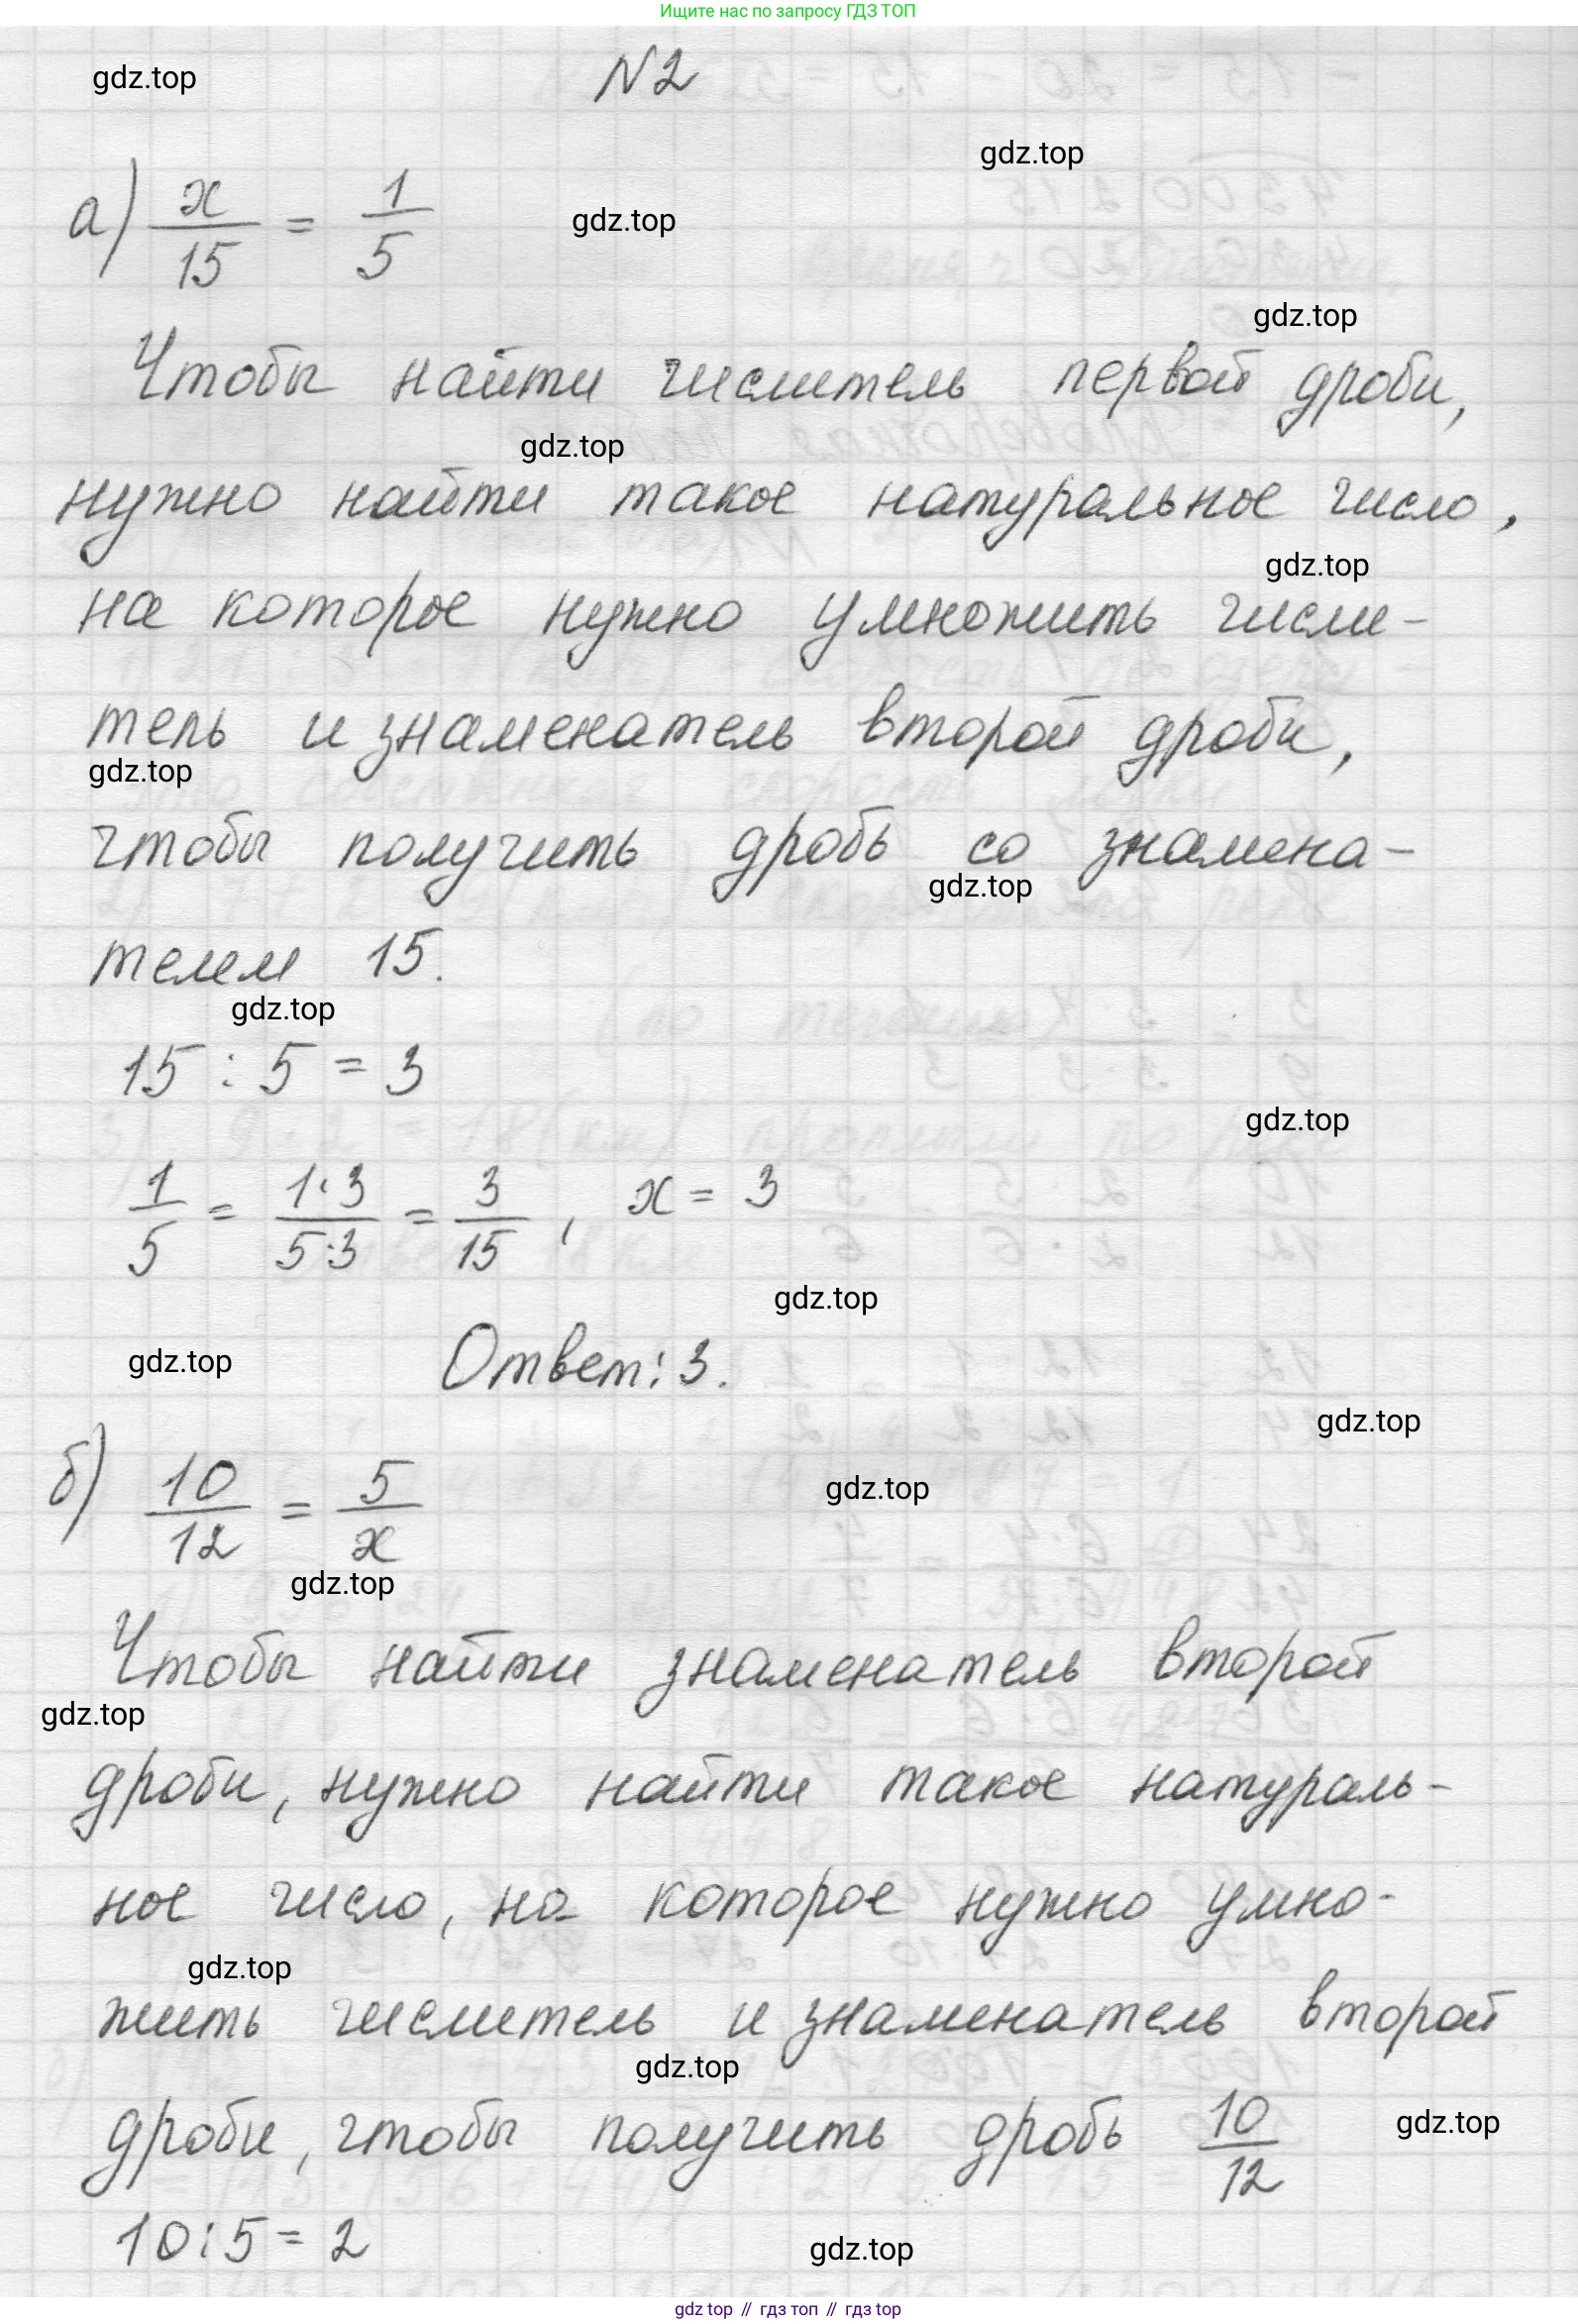 Ищите нас по запросу ГДЗ ТОП
N2
gdz.top
gdz.top
а) x/15 = 1/5
gdz.top
gdz.top
Чтобы найти числитель первой дроби,
gdz.top
нужно найти такое натуральное число,
gdz.top
на которое нужно умножить числи-
тель и знаменатель второй дроби,
gdz.top
чтобы получить дробь со знамена-
gdz.top
телем 15.
gdz.top
15 : 5 = 3
gdz.top
1/5 = 1·3/5·3 = 3/15 , x = 3
gdz.top
gdz.top
Ответ: 3.
gdz.top
б) 10/12 = 5/x
gdz.top
gdz.top
Чтобы найти знаменатель второй
gdz.top
дроби, нужно найти такое натураль-
ное число, на которое нужно умно-
gdz.top
жить числитель и знаменатель второй
gdz.top
дроби, чтобы получить дробь 10/12
gdz.top
10 : 5 = 2
gdz.top
gdz top // гдз топ // гдз top